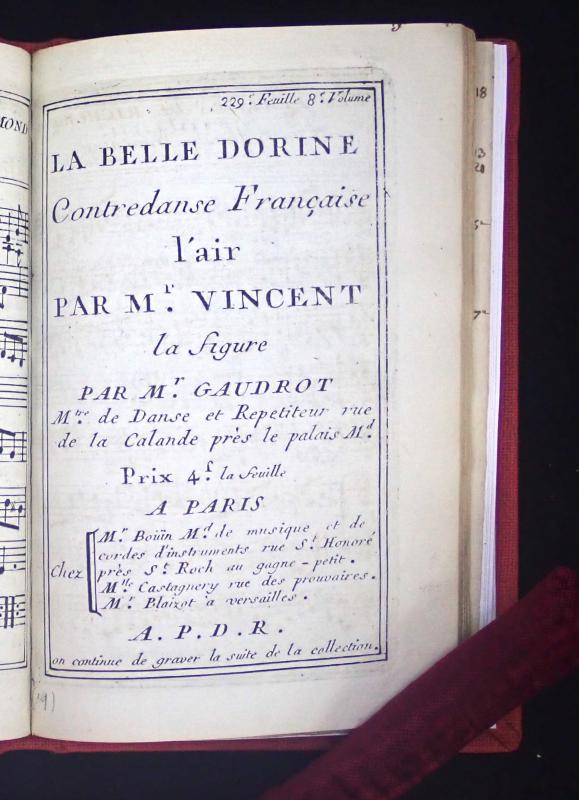 MOND
229.e Feuille 8.e Volume
LA BELLE DORINE
Contredanse Française
l'air
PAR M.r VINCENT
la figure
PAR M.r GAUDROT
M.tre de Danse et Repetiteur rue
de la Calande près le palais M.d
Prix 4.f la feuille
A PARIS
Chez
M.r Boüin M.d de musique et de
cordes d'instruments rue S.t Honoré
près S.t Roch au gagne-petit.
M.lle Castagnery rue des prouvaires.
M.r Blaizot a versailles.
A. P. D. R.
on continue de graver la suite de la collection.
18